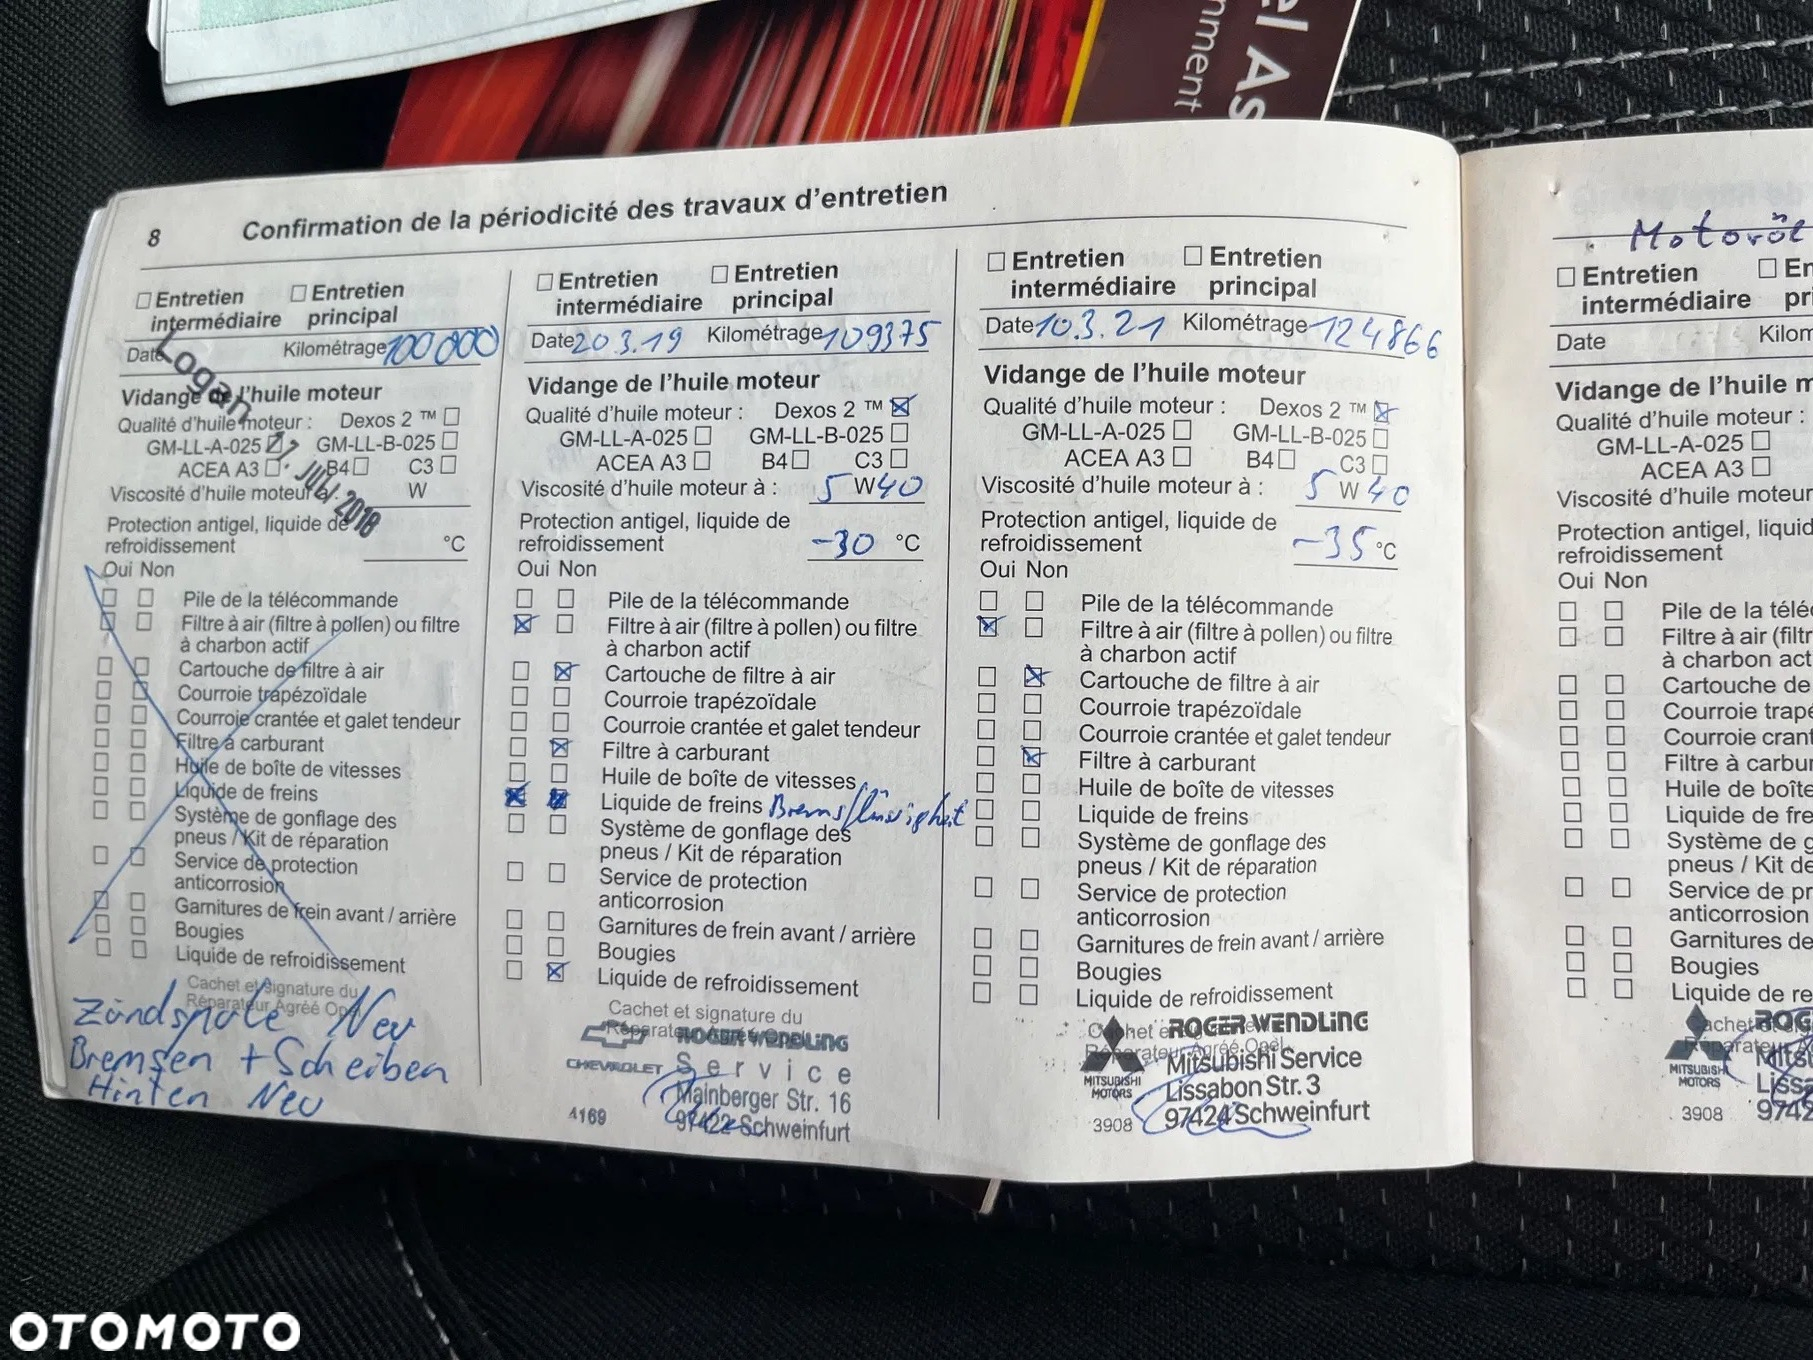 el As
nment
8 Confirmation de la périodicité des travaux d'entretien
Entretien intermédiaire Entretien principal
Date Kilométrage 100 000
Logan
Vidange de l'huile moteur
Qualité d'huile moteur : Dexos 2 ™
GM-LL-A-025 GM-LL-B-025
ACEA A3 B4 C3
JUIL 2018
Viscosité d'huile moteur à : W
Protection antigel, liquide de
refroidissement °C
Oui Non
Pile de la télécommande
Filtre à air (filtre à pollen) ou filtre
à charbon actif
Cartouche de filtre à air
Courroie trapézoïdale
Courroie crantée et galet tendeur
Filtre à carburant
Huile de boîte de vitesses
Liquide de freins
Système de gonflage des
pneus / Kit de réparation
Service de protection
anticorrosion
Garnitures de frein avant / arrière
Bougies
Liquide de refroidissement
Cachet et signature du
Réparateur Agréé Opel
Zündspule Neu
Bremsen + Scheiben
Hinten Neu
Entretien intermédiaire Entretien principal
Date 20 3.19 Kilométrage 109375
Vidange de l'huile moteur
Qualité d'huile moteur : Dexos 2 ™
GM-LL-A-025 GM-LL-B-025
ACEA A3 B4 C3
Viscosité d'huile moteur à : 5 W 40
Protection antigel, liquide de
refroidissement -30 °C
Oui Non
Pile de la télécommande
Filtre à air (filtre à pollen) ou filtre
à charbon actif
Cartouche de filtre à air
Courroie trapézoïdale
Courroie crantée et galet tendeur
Filtre à carburant
Huile de boîte de vitesses
Liquide de freins Bremsflüssigkeit
Système de gonflage des
pneus / Kit de réparation
Service de protection
anticorrosion
Garnitures de frein avant / arrière
Bougies
Liquide de refroidissement
Cachet et signature du
Réparateur Agréé Opel
ROGER WENDLING
CHEVROLET Service
Mainberger Str. 16
4169 97422 Schweinfurt
Entretien intermédiaire Entretien principal
Date 10.3.21 Kilométrage 124866
Vidange de l'huile moteur
Qualité d'huile moteur : Dexos 2 ™
GM-LL-A-025 GM-LL-B-025
ACEA A3 B4 C3
Viscosité d'huile moteur à : 5 W 40
Protection antigel, liquide de
refroidissement -35 °C
Oui Non
Pile de la télécommande
Filtre à air (filtre à pollen) ou filtre
à charbon actif
Cartouche de filtre à air
Courroie trapézoïdale
Courroie crantée et galet tendeur
Filtre à carburant
Huile de boîte de vitesses
Liquide de freins
Système de gonflage des
pneus / Kit de réparation
Service de protection
anticorrosion
Garnitures de frein avant / arrière
Bougies
Liquide de refroidissement
Cachet et
Réparateur Agréé Opel
ROGER WENDLING
Mitsubishi Service
MITSUBISHI MOTORS Lissabon Str. 3
3908 97424 Schweinfurt
Motoröl
Entretien intermédiaire En
pri
Date Kilom
Vidange de l'huile m
Qualité d'huile moteur :
GM-LL-A-025
ACEA A3
Viscosité d'huile moteur
Protection antigel, liquid
refroidissement
Oui Non
Pile de la télé
Filtre à air (filtr
à charbon act
Cartouche de
Courroie trapé
Courroie crant
Filtre à carbur
Huile de boîte
Liquide de fre
Système de g
pneus / Kit de
Service de pr
anticorrosion
Garnitures de
Bougies
Liquide de re
Cachet et
Réparateur
ROG
Mitsu
MITSUBISHI MOTORS Lissa
3908 9742
OTOMOTO